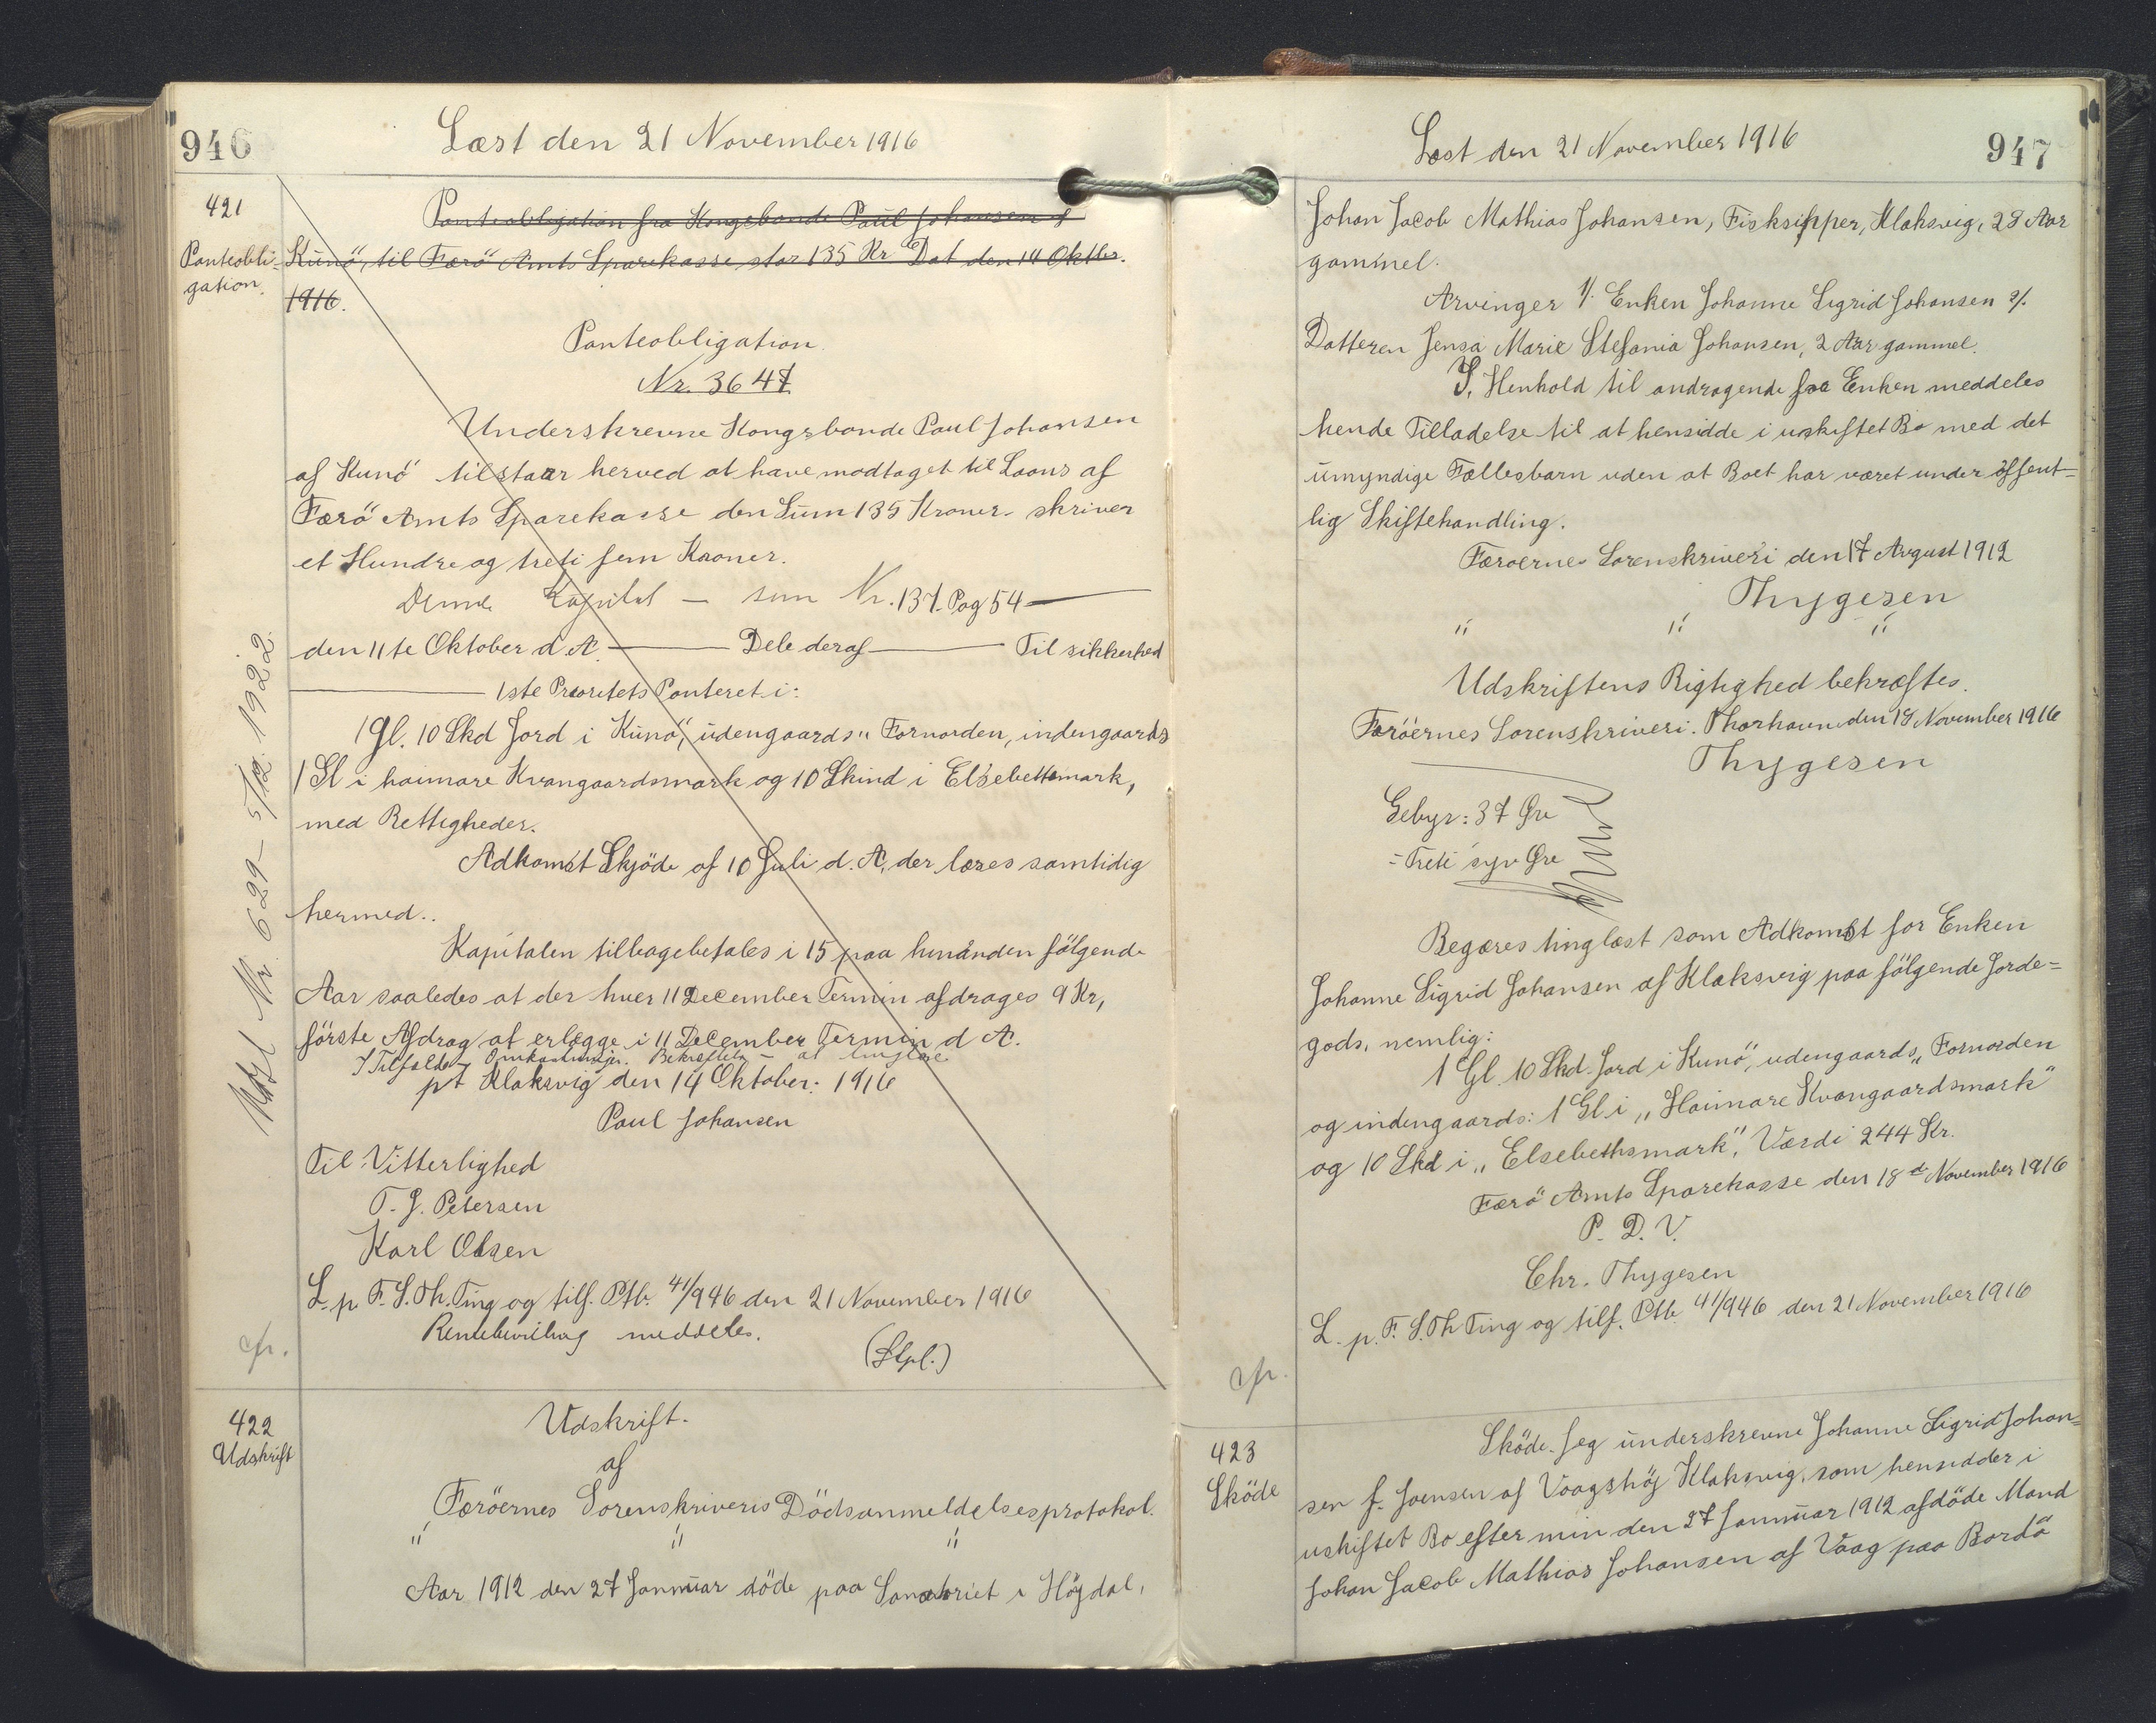 946
Læst den 21 November 1916
421
Panteobli-
gation.
Panteobligation fra Kongsbonde Paul Johansen af
Kunö, til Færö Amts Sparekasse stor 135 Kr Dat den 14 Oktbr.
1916.
Panteobligation.
Nr. 3647
Underskrevne Kongsbonde Paul Johansen
af Kunö tilstaar herved at have modtaget til Laans af
Færö Amts Sparekasse den Sum 135 Kroner - skriver
et Hundre og treti fem Kroner.
Denne Kapital — som Nr. 137. Pag 54 —
den 11te Oktober d. A. — Dele deraf — Til sikkerhed
— 1ste Prioritets Panteret i:
1 Gl. 10 Skd Jord i Kunö, udengaards „ Fornorden, indengaards
1 Gl i haimare Kvangaardsmark og 10 Skind i Elsebettsmark,
med Rettigheder.
Adkomst Skjöde af 10 Juli d. A, der læses samtidig
hermed..
Kapitalen tilbagebetales i 15 paa hinanden fölgende
Aar saaledes at der hver 11 December Termin afdrages 9 Kr,
förste Afdrag at erlægge i 11 December Termin d A.
I Tilfælde - Omkostninger. Bekræftelse - at tinglæse
pt Klaksvig den 14 Oktober. 1916
Paul Johansen
Til Vitterlighed
T. J. Petersen
Karl Olsen
L. p. F. S. Th. Ting og tilf. Ptb. 41/946 den 21 November 1916
meddeles.
(Stpl.)
cfr.
Nr. 629 - 5/12. 1922.
422
Udskrift
Udskrift.
af
Færöernes Sorenskriveris Dödsanmeldelsesprotokol.
" " "
Aar 1912 den 27 Januar döde paa Sanatoriet i Höjdal,
Læst den 21 November 1916
947
Johan Jacob Mathias Johansen, Fiskskipper, Klaksvig, 28 Aar
gammel.
Arvinger 1/. Enken Johanne Sigrid Johansen 2/.
Datteren Jensa Marie Stefania Johansen, 2 Aar gammel.
I, Henhold til andragende fra Enken meddeles
hende Tilladelse til at hensidde i uskiftet Bo med det
umyndige Fællesbarn uden at Boet har været under offent=
lig Skiftehandling.
Færoernes Sorenskriveri den 17 Avgust 1912
Thygesen
" " "
Udskriftens Rigtighed bekræftes.
Færöernes Sorenskriveri. Thorhavn den 18 November 1916
Thygesen
Gebyr: 37 Øre
- Treti syv Øre
Begæres tinglæst som Adkomst for Enken
Johanne Sigrid Johansen af Klaksvig paa fölgende Jorde=
gods, nemlig:
1 Gl 10 Skd. Jord i Kunö, udengaards „ Fornorden
og indengaards: 1 Gl i „ Haimare Kvangaardsmark"
og 10 Skd i „ Elsebethsmark", Værdi 244 Kr.
Færö Amts Sparekasse den 18de November 1916
P. D. V.
Chr. Thygesen
L. p. F. S. Th Ting og tilf. Ptb 41/946 den 21 November 1916
cfr.
423
Sköde
Sköde. Jeg underskrevne Johanne Sigrid Johan=
sen f. Joensen af Vaagshöj Klaksvig, som hensidder i
uskiftet Bo efter min den 27 Januar 1912 afdöde Mand
Johan Jacob Mathias Johansen af Vaag paa Bordö